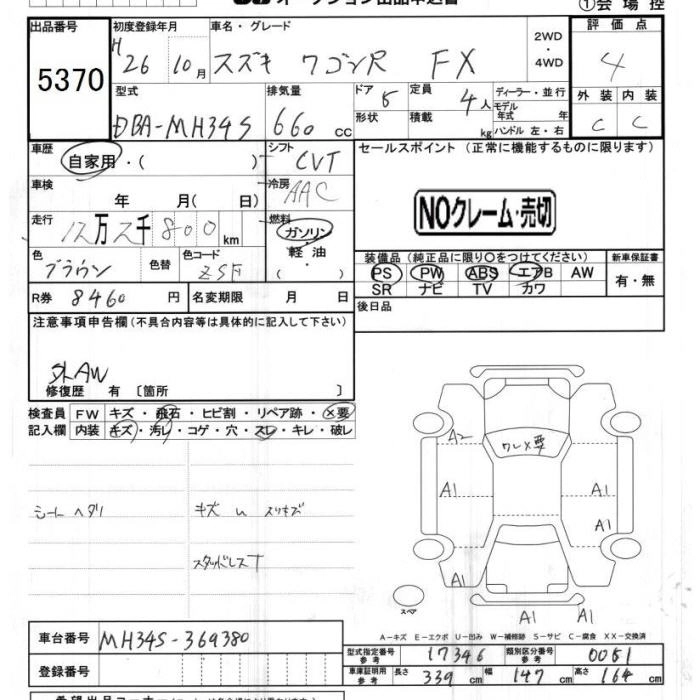 オークション出品申込書
①会場控
出品番号 5370
初度登録年月 H 26 10月
車名・グレード スズキ ワゴンR FX
2WD ・ 4WD
評価点 4
型式 DBA-MH34S
排気量 660 cc
ドア 5 形状
定員 4人 積載 kg
ディーラー・並行
モデル年式 年式
ハンドル 左・右
外装 内装
C C
車歴 自家用・( )
シフト CVT
セールスポイント (正常に機能するものに限ります)
車検 年 月( 日)
冷房 AAC
NOクレーム・売切
走行 12万2千800km
燃料 ガソリン・軽油・( )
色 ブラウン 色替 色コード ZSF
装備品 (純正品に限り○をつけてください) 新車保証書
PS PW ABS エアB AW 有・無
SR ナビ TV カワ
R券 8460円 名変期限 月 日
後日品
注意事項申告欄(不具合内容等は具体的に記入して下さい)
社外AW
修復歴 有 〔箇所 〕
検査員 FW キズ・飛石・ヒビ割・リペア跡・×要
記入欄 内装 キズ・汚レ・コゲ・穴・スレ・キレ・破レ
シートヘタリ キズ 山 スリキズ
スタッドレスT
A2 ワレ×要
A1 A1
A1
A1
スペア
A1 A1
A-キズ E-エクボ U-凹み W-補修跡 S-サビ C-腐食 XX-交換済
車台番号 MH34S-369380
型式指定番号 参考 17346 類別区分番号 参考 0051
登録番号
車庫証明用 参考 長さ 339 cm 幅 147 cm 高さ 164 cm